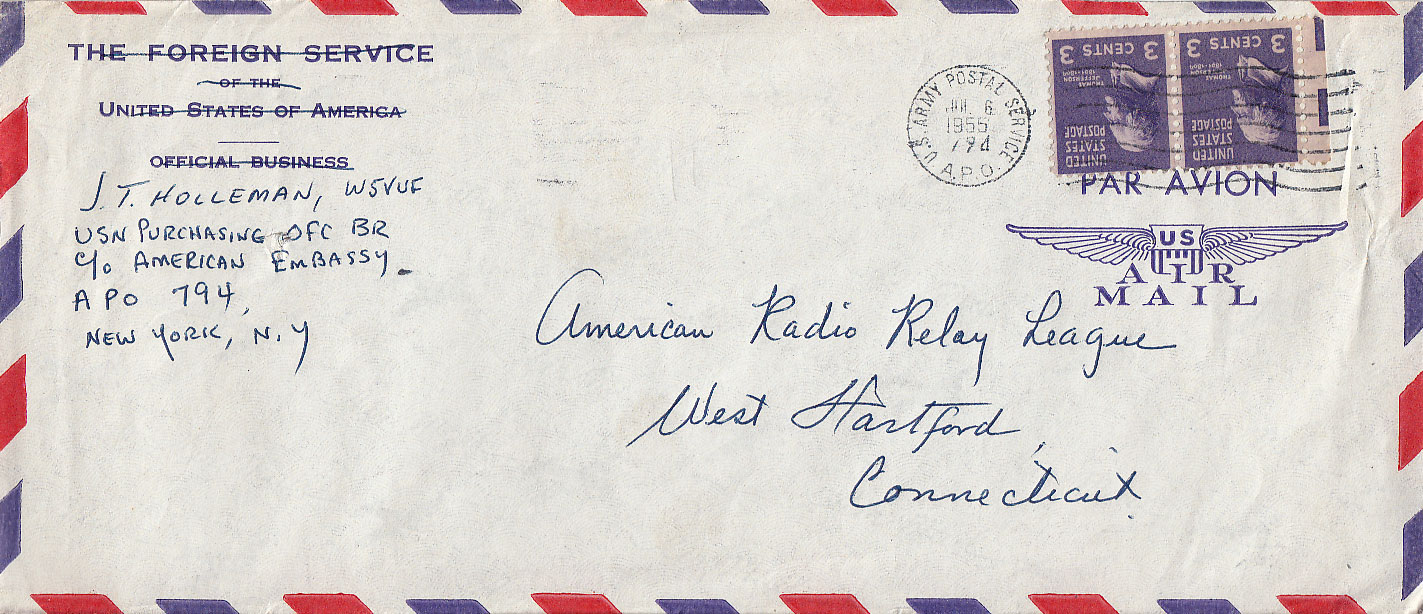 THE FOREIGN SERVICE
OF THE
UNITED STATES OF AMERICA
OFFICIAL BUSINESS
J. T. HOLLEMAN, W5VUE
USN PURCHASING OFC BR
C/O AMERICAN EMBASSY
APO 794,
NEW YORK, N.Y
U.S. ARMY POSTAL SERVICE
JUL 6
1955
794
A.P.O.
3 CENTS 3
THOMAS
JEFFERSON
1801-1809
UNITED
STATES
POSTAGE
3 CENTS 3
THOMAS
JEFFERSON
1801-1809
UNITED
STATES
POSTAGE
PAR AVION
US
AIR
MAIL
American Radio Relay League
West Hartford,
Connecticut